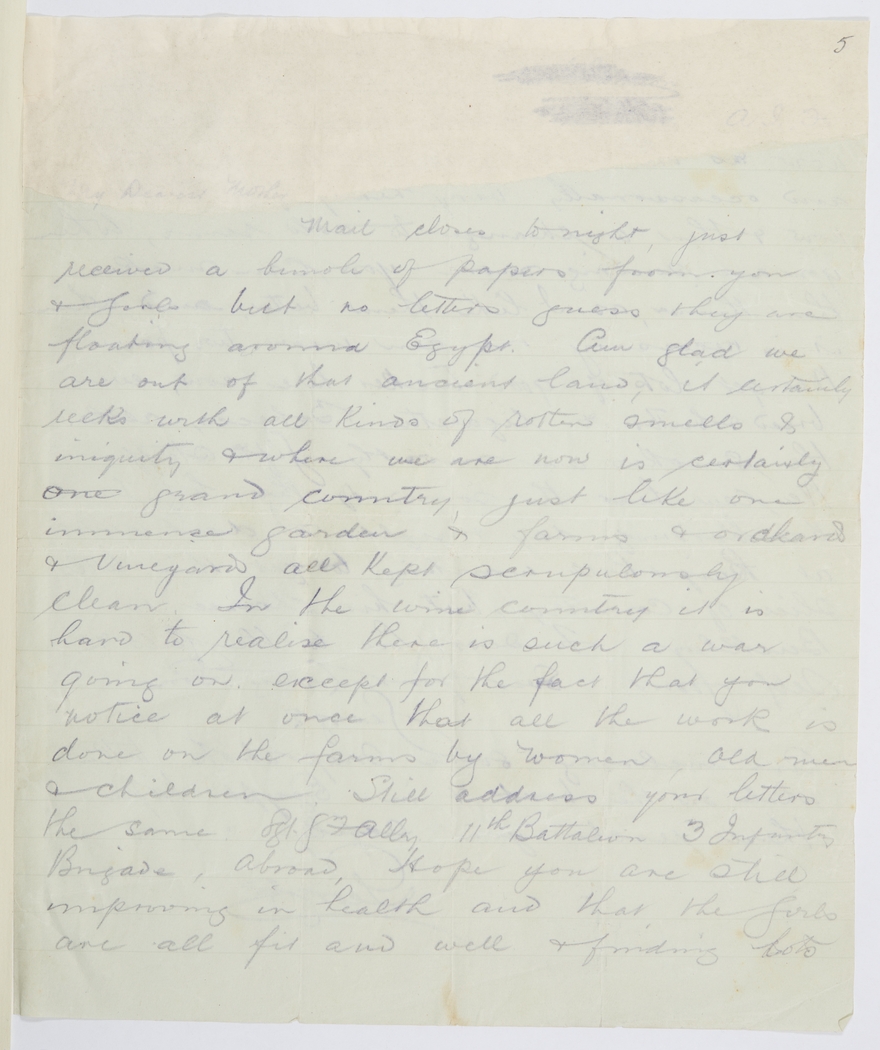 5
My Dearest Mother
Mail closes to night, just
received a bunch of papers from you
& Girls but no letters guess they are
floating around Egypt. Am glad we
are out of that ancient land, it certainly
reeks with all kinds of rotten smells &
iniquity & where we are now is certainly
one grand country, just like one
immense garden & farms & orchards
& Vineyards all kept scrupulously
clean. In the wine country it is
hard to realise there is such a war
going on. except for the fact that you
notice at once that all the work is
done on the farms by women, old men
& children. Still address your letters
the same. Sgt Alby 11th Battalion 3 Infantry
Brigade, abroad, Hope you are still
improving in health and that the Girls
are all fit and well & finding lots